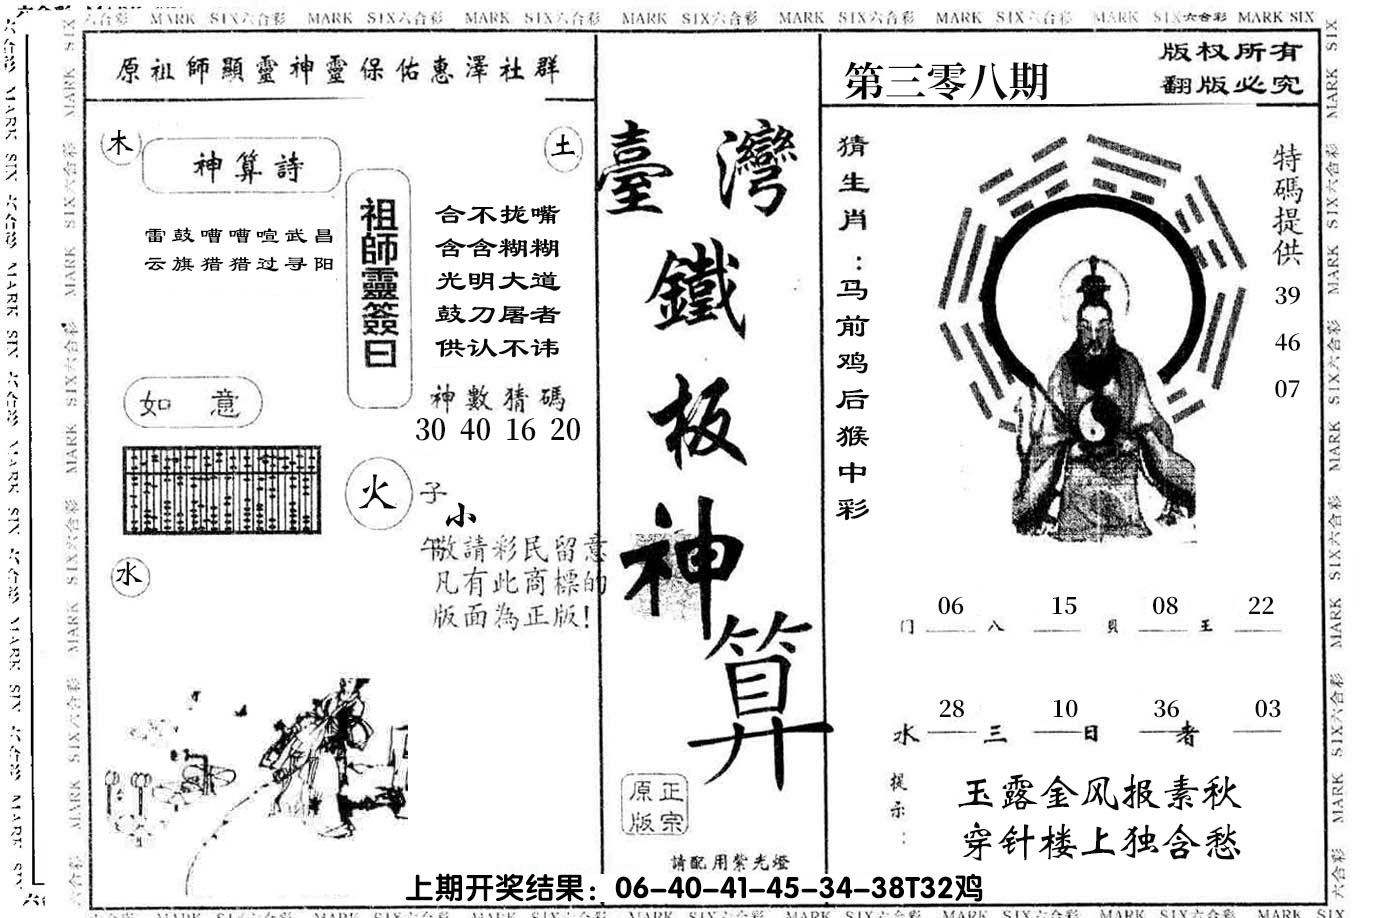 MARK SIX六合彩 MARK SIX六合彩 MARK SIX六合彩 MARK SIX六合彩 MARK SIX六合彩 MARK SIX六合彩 MARK SIX六合彩 MARK SIX
原祖師顯靈神靈保佑惠澤社群
木
土
神算詩
雷鼓嘈嘈喧武昌
云旗猎猎过寻阳
祖師靈簽曰
合不拢嘴
含含糊糊
光明大道
鼓刀屠者
供认不讳
神數猜碼
30 40 16 20
如意
火
子
小
午
敬請彩民留意
凡有此商標的
版面為正版!
水
臺灣
鐵
板
神
算
原正
版宗
請配用紫光燈
第三零八期
版权所有
翻版必究
猜生肖:马前鸡后猴中彩
特碼提供
39
46
07
06 15 08 22
门 八 貝 王
28 10 36 03
水 三 日 者
提示:
玉露金风报素秋
穿针楼上独含愁
上期开奖结果：06-40-41-45-34-38T32鸡